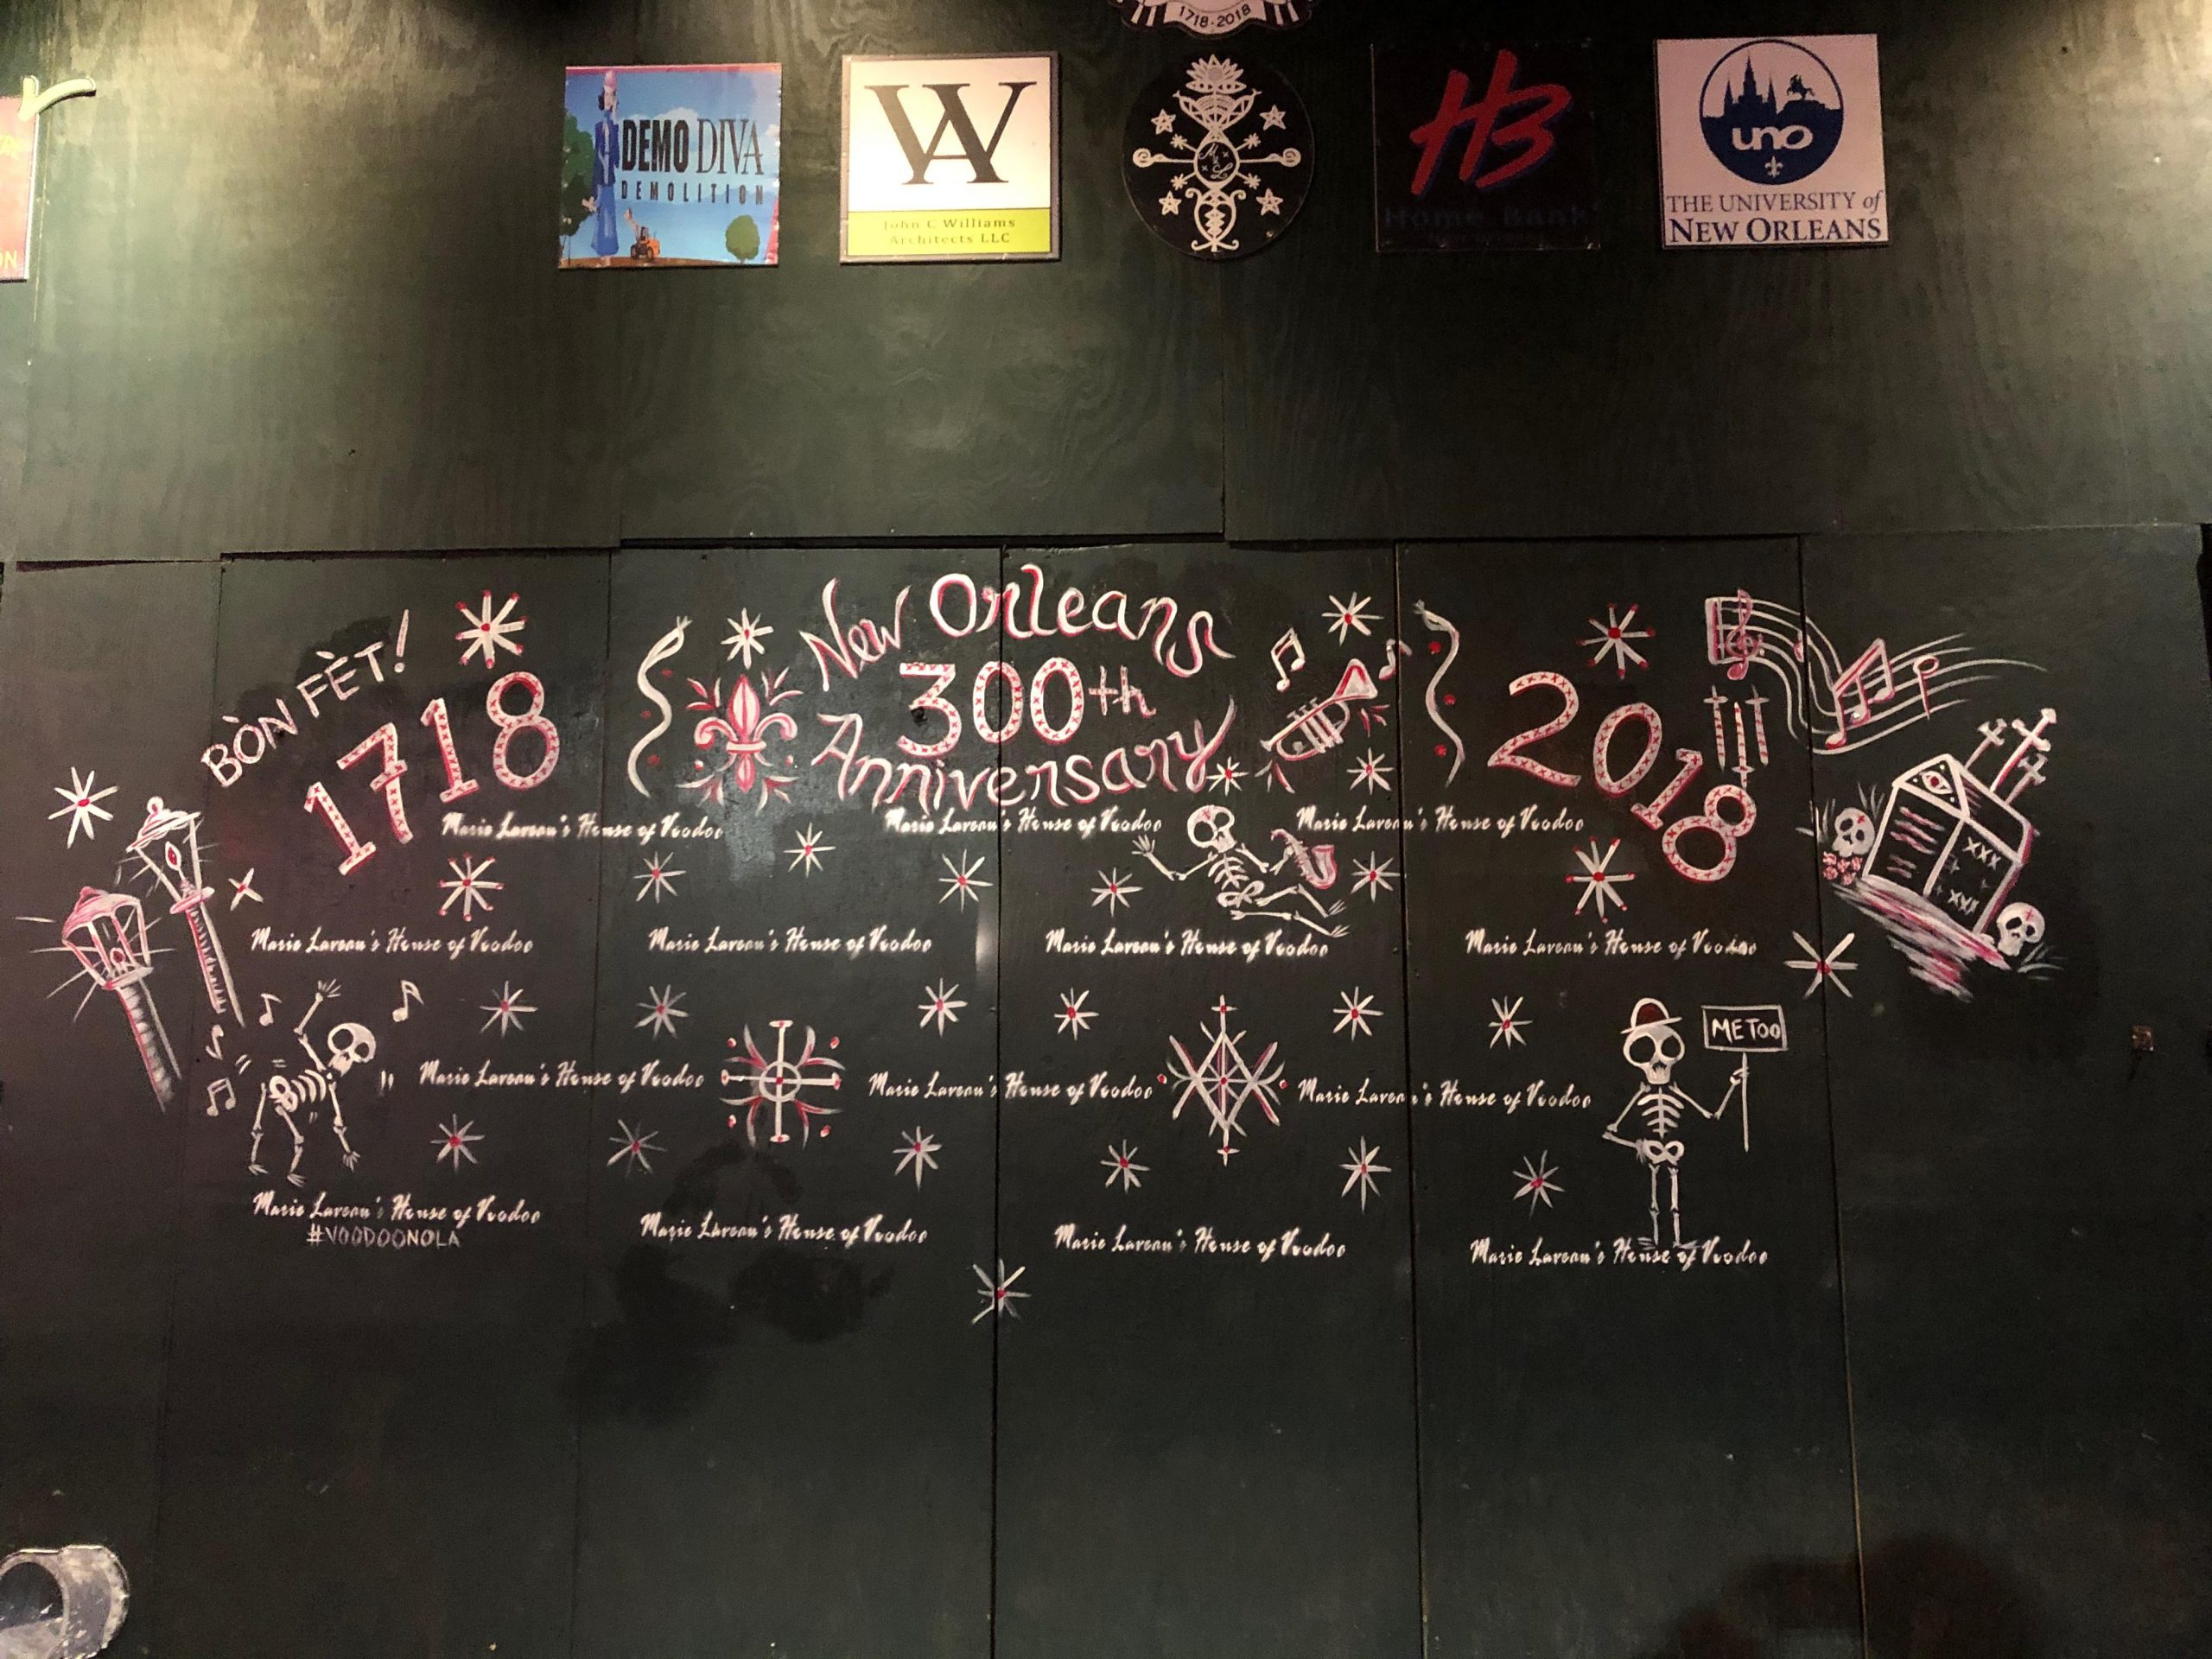 1718-2018
DEMO DIVA
DEMOLITION
WA
John C Williams
Architects LLC
HB
Home Bank
uno
THE UNIVERSITY of
NEW ORLEANS
ON
BÒN FÈT!
1718
New Orleans
300th
Anniversary
2018
Marie Laveau's House of Voodoo
Marie Laveau's House of Voodoo
Marie Laveau's House of Voodoo
Marie Laveau's House of Voodoo
Marie Laveau's House of Voodoo
Marie Laveau's House of Voodoo
Marie Laveau's House of Voodoo
XXX
XXX
ME TOO
Marie Laveau's House of Voodoo
Marie Laveau's House of Voodoo
Marie Laveau's House of Voodoo
Marie Laveau's House of Voodoo
#VOODOONOLA
Marie Laveau's House of Voodoo
Marie Laveau's House of Voodoo
Marie Laveau's House of Voodoo